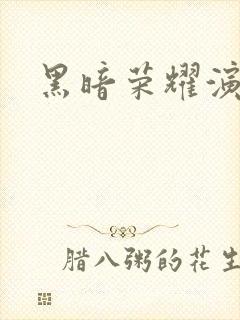 黑暗荣耀演
腊八粥的花生